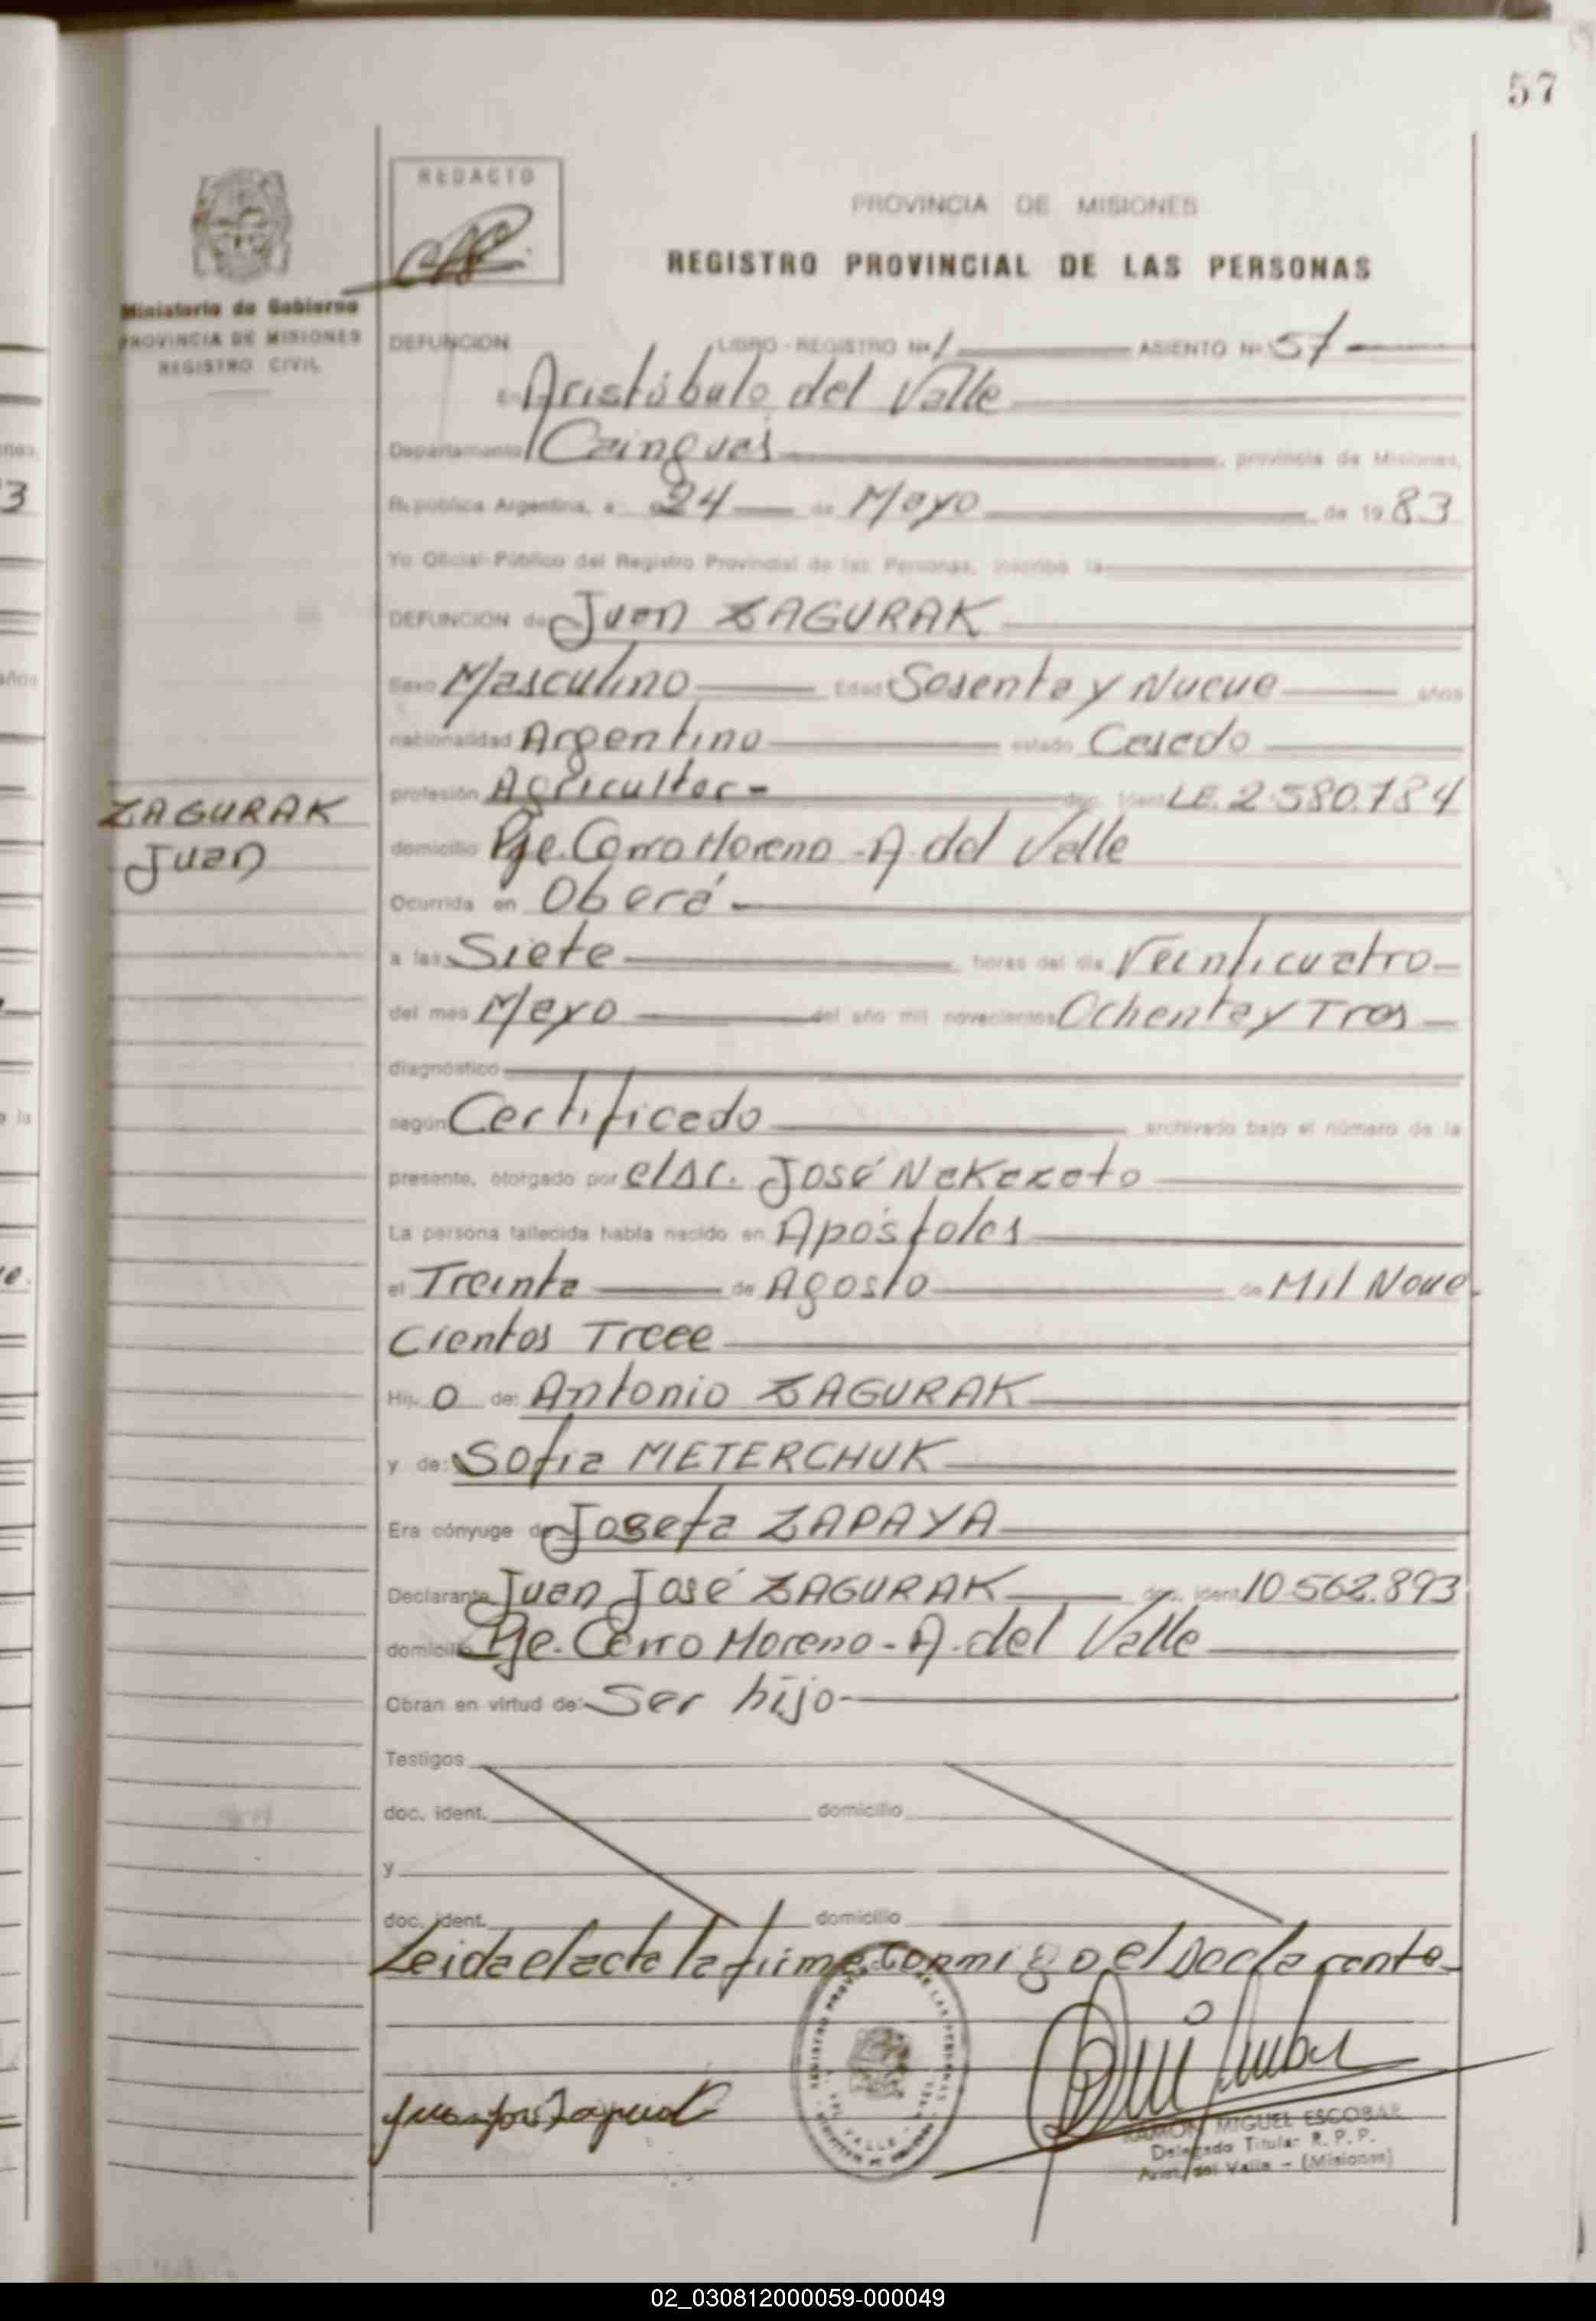 57
REDACTO
PROVINCIA DE MISIONES
REGISTRO PROVINCIAL DE LAS PERSONAS
Ministerio de Gobierno
PROVINCIA DE MISIONES
REGISTRO CIVIL
DEFUNCION LIBRO - REGISTRO Nº 1 ASIENTO Nº 57
En Aristóbulo del Valle
Departamento Cainguás, provincia de Misiones,
República Argentina, a 24 de Mayo de 1983
Yo Oficial Público del Registro Provincial de las Personas, inscribo la
DEFUNCION de Juan ZAGURAK
Sexo Masculino Edad Sesenta y Nueve años
nacionalidad Argentino estado Casado
profesión Agricultor - doc. ident. L.E. 2.580.784
ZAGURAK
Juan
domicilio Pje. Cerro Moreno - A. del Valle
Ocurrida en Oberá -
a las Siete horas del día Veinticuatro
del mes Mayo del año mil novecientos Ochenta y Tres
diagnóstico
según Certificado archivado bajo el número de la
presente, otorgado por el dr. José Nakazato
La persona fallecida había nacido en Apóstoles
el Treinta de Agosto de Mil Nove
cientos Trece
Hij o de: Antonio ZAGURAK
y de: Sofia METERCHUK
Era cónyuge de Josefa ZAPAYA
Declarante Juan José ZAGURAK doc. ident. 10.562.893
domicilio Pje. Cerro Moreno - A. del Valle
Obran en virtud de: Ser hijo -
Testigos
doc. ident. domicilio
y
doc. ident. domicilio
Leida el acta la firma conmigo el Declarante
RAMON MIGUEL ESCOBAR
Delegado Titular R. P. P.
Arist. del Valle - (Misiones)
02_030812000059-000049